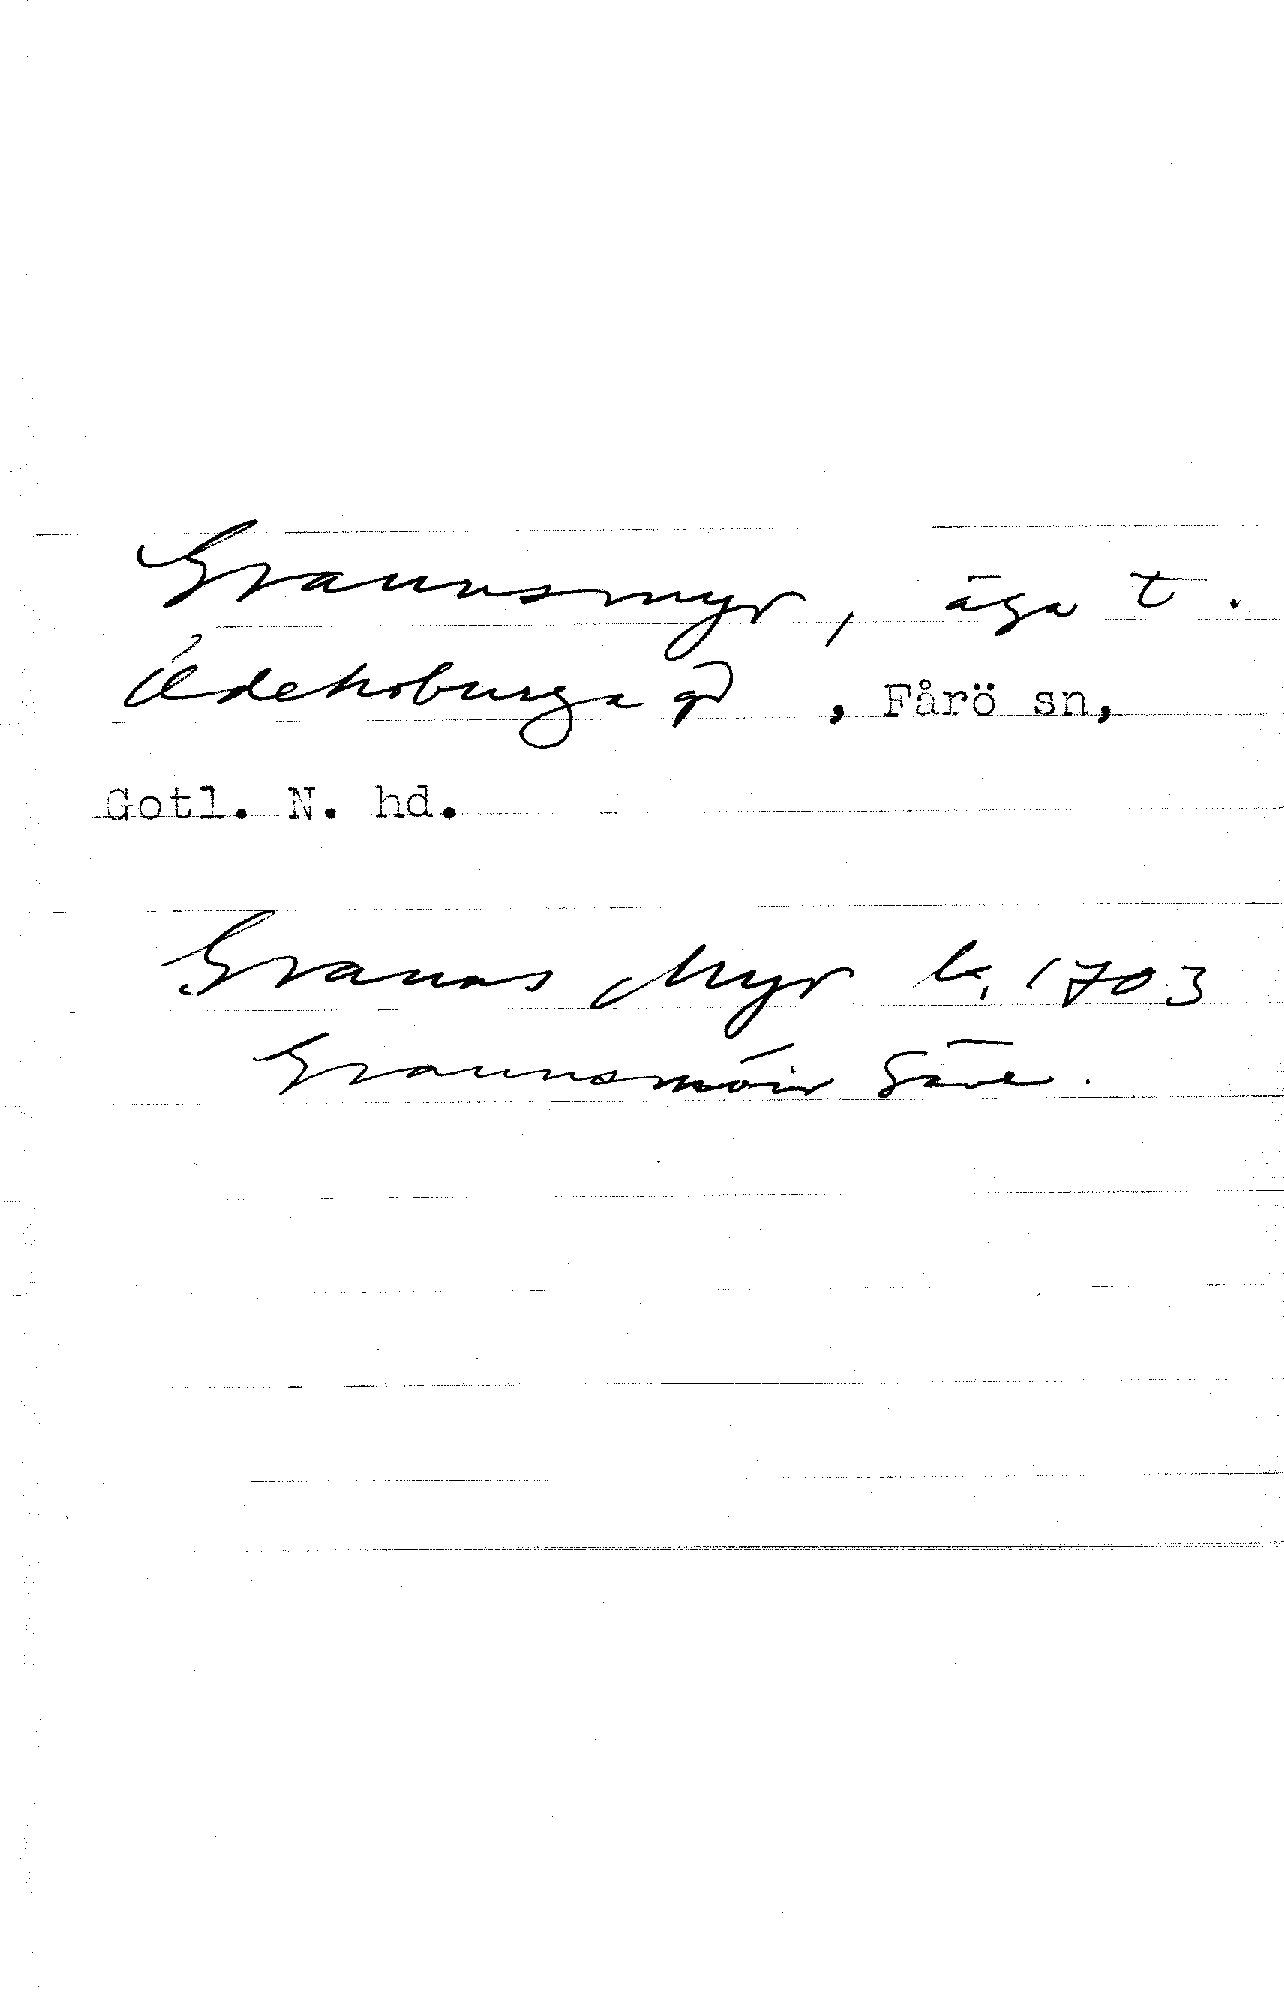 Graunsmyr, äga t.
Ödehoburga gd, Fårö sn,
Gotl. N. hd.
Grauns Myr k. 1703
Graunsmöir Säve.